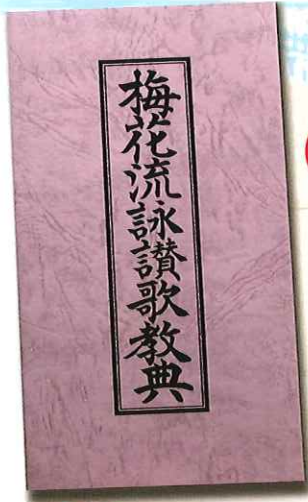 梅花流詠讃歌教典